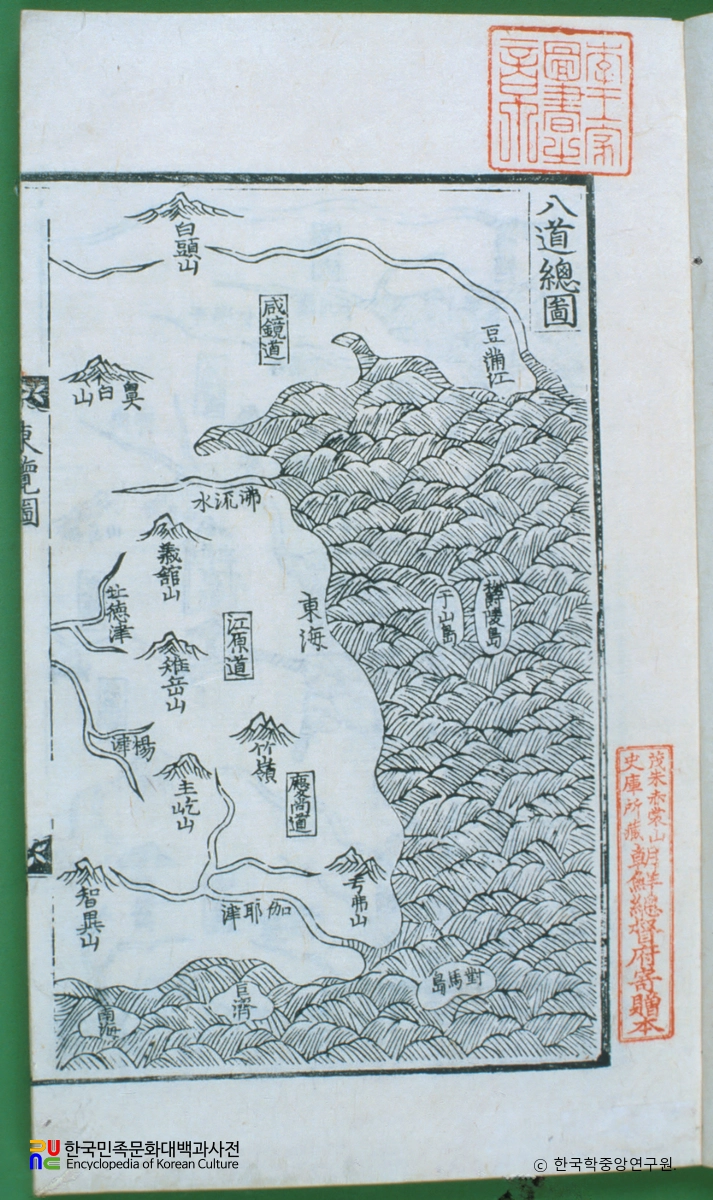 李王家
圖書之
八道總圖
白頭山
咸鏡道
豆滿江
鼻白山
東覽圖
沸流水
義館山
德津
江原道
東海
于山島
鬱陵島
雉岳山
楊津
竹嶺
主屹山
慶尚道
智異山
伽耶津
于弗山
對馬島
巨濟
南海
茂朱赤裳山
史庫所藏
朝鮮總督府寄贈本
한국민족문화대백과사전
Encyclopedia of Korean Culture
ⓒ 한국학중앙연구원